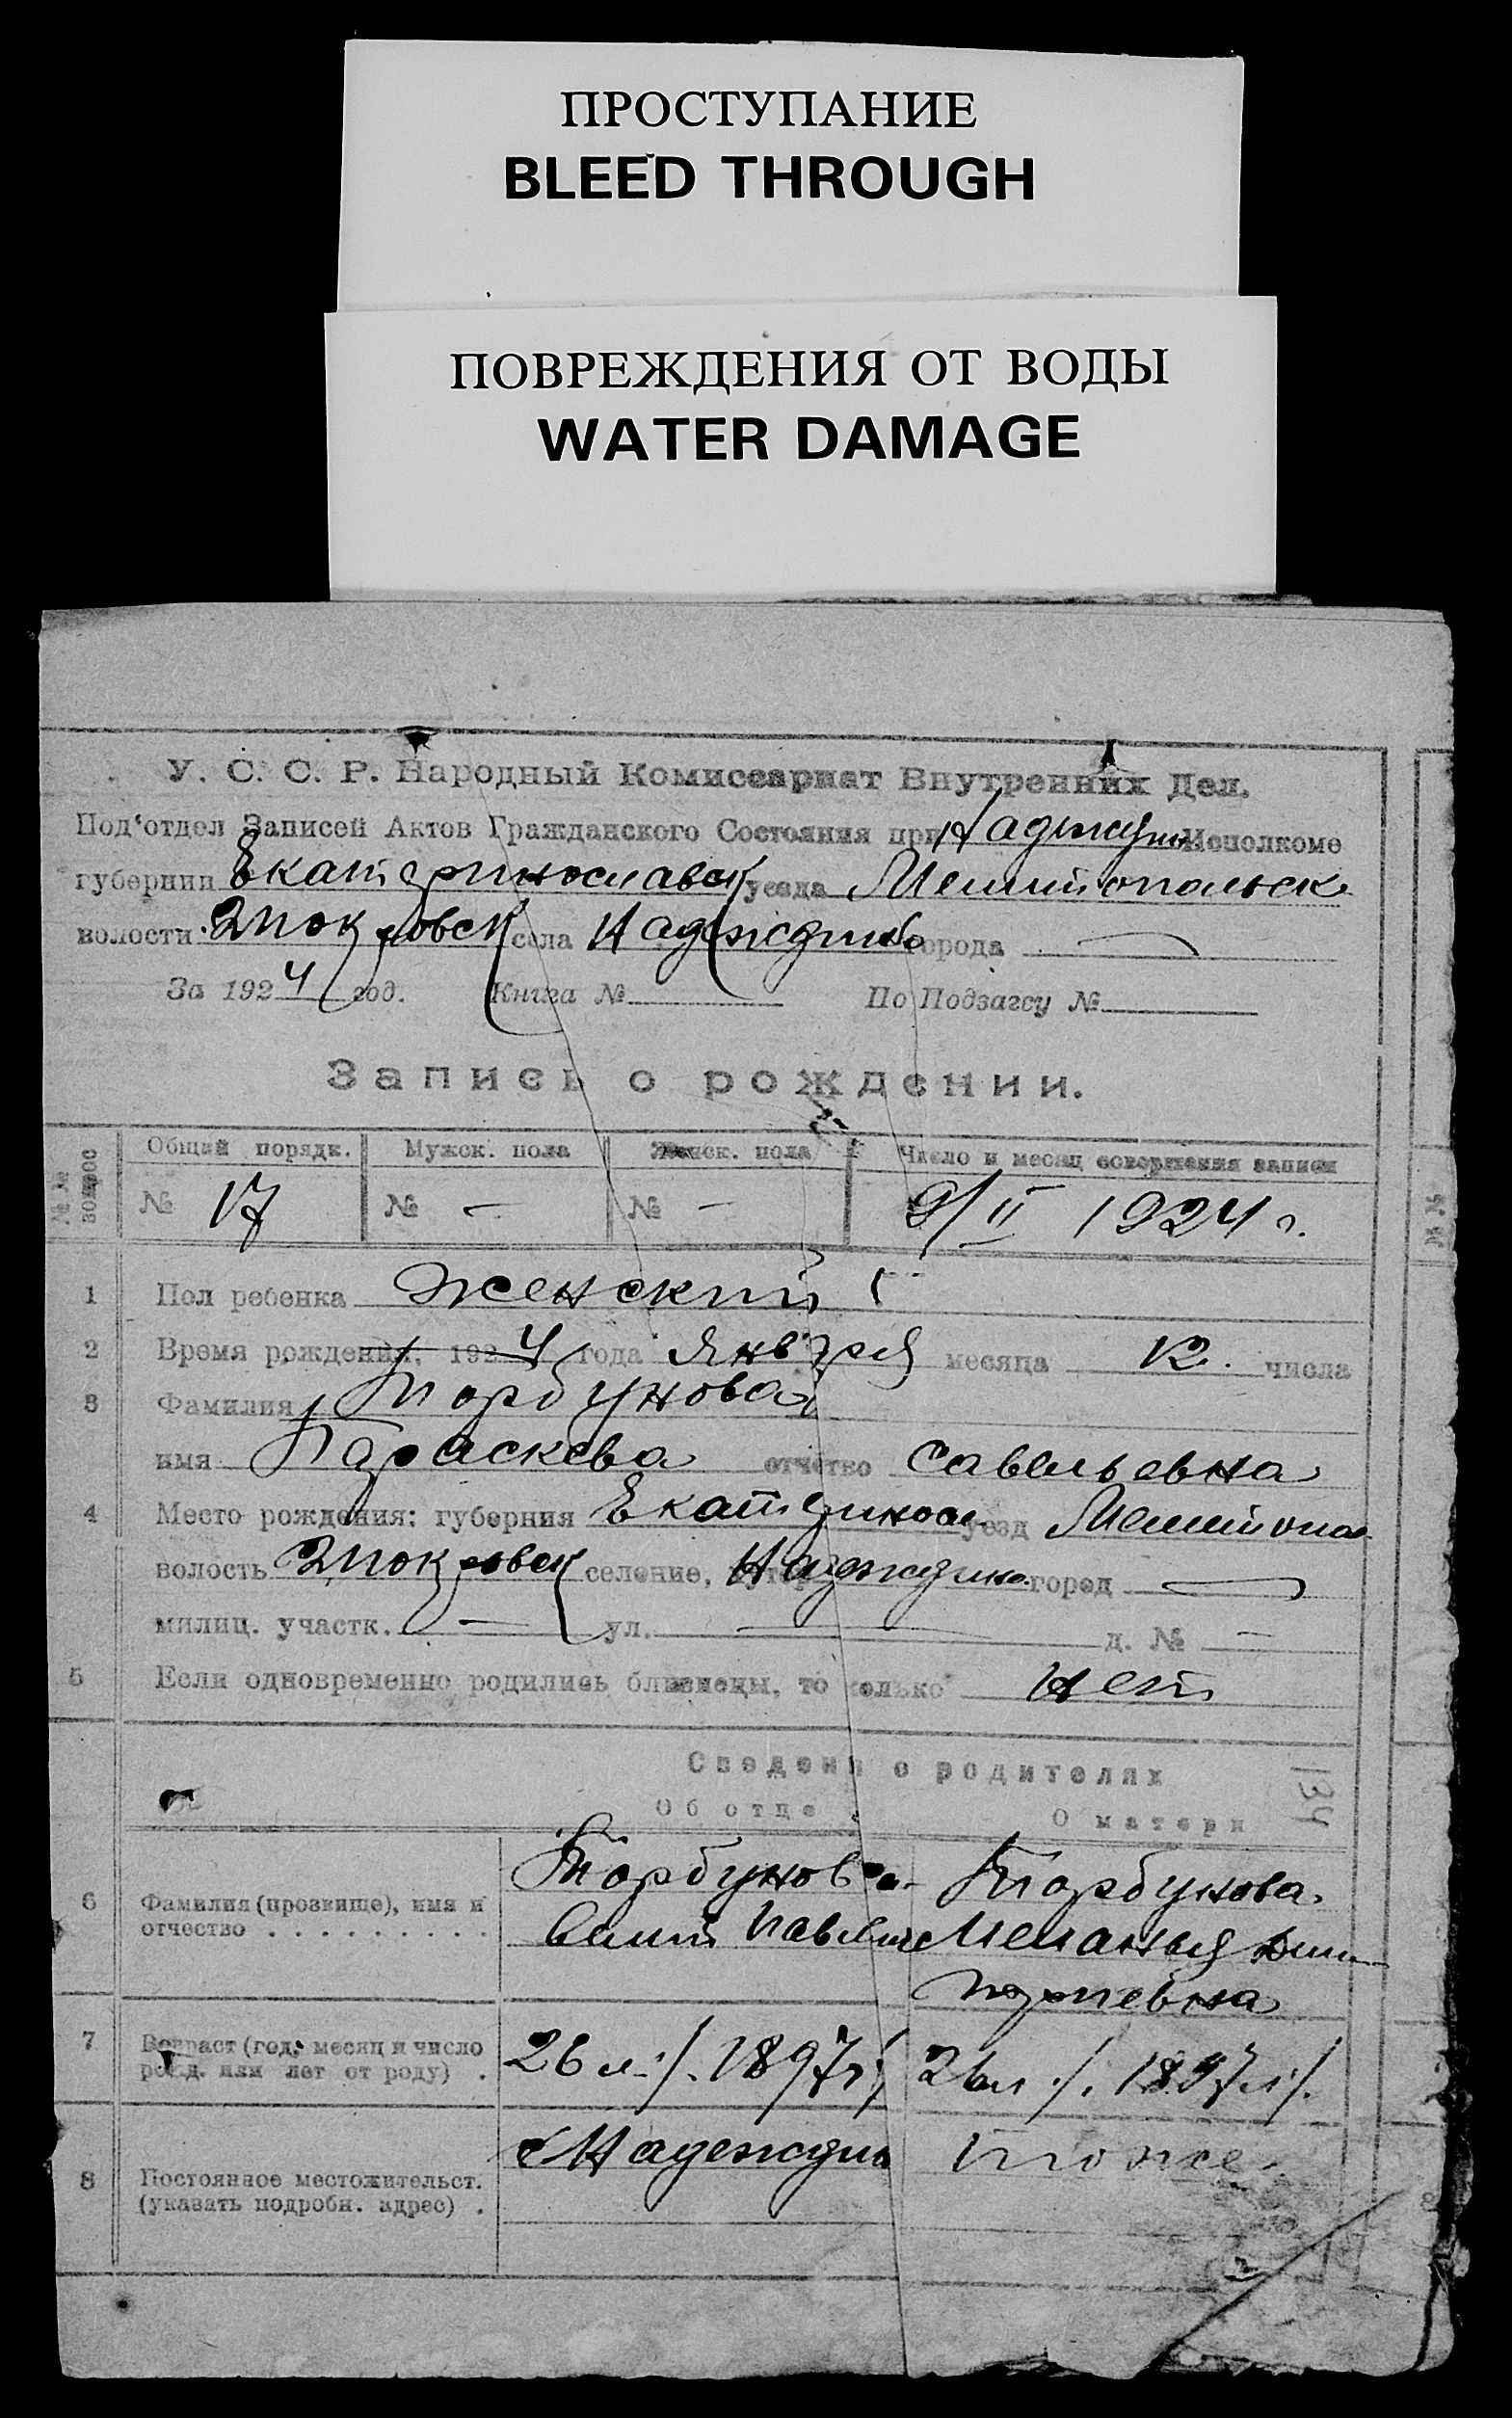 ПРОСТУПАНИЕ
BLEED THROUGH
ПОВРЕЖДЕНИЯ ОТ ВОДЫ
WATER DAMAGE
У. С. С. Р. Народный Комиссариат Внутренних Дел.
Под'отдел Записей Актов Гражданского Состояния при Исполкоме
губернии Екатеринославск уезда Мелитопольск
волости 2 Покровск села Надеждино города —
За 1924 год. Книга № По Подзагсу №
Запись о рождении.
№№ вопрос
Общий порядк. Мужск. пола Женск. пола Число и месяц совершения записи
№ 17 № — № — 9/II 1924 г.
1 Пол ребенка женский
2 Время рождения, 1924 года Января месяца 12 числа
3 Фамилия Торбунова
имя Параскева отчество Савельевна
4 Место рождения: губерния Екатеринос уезд Мелитопол
волость 2 Покровск селение, город —
милиц. участк. — ул. — д. № —
5 Если одновременно родились близнецы, то сколько нет
Сведения о родителях 134
Об отце О матери
6 Фамилия (прозвище), имя и отчество Торбунов Торбунова
Меланья
7 Возраст (год, месяц и число рожд. или лет от роду) 26 л. /. 1897 г/ 26 л /. 1897 г/.
8 Постоянное местожительст. (указать подробн. адрес) с Надеждино тоже
№ №
8